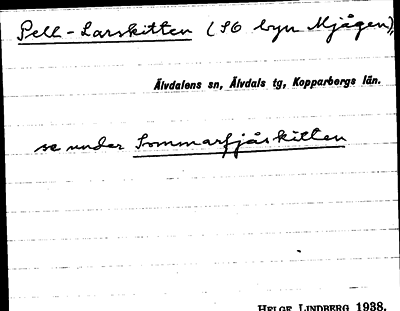 Pell-Larskitten (SO byn Mjågen),
Älvdalens sn, Älvdals tg, Kopparbergs län.
se under Sommarfjåskitten
HELGE LINDBERG 1938.